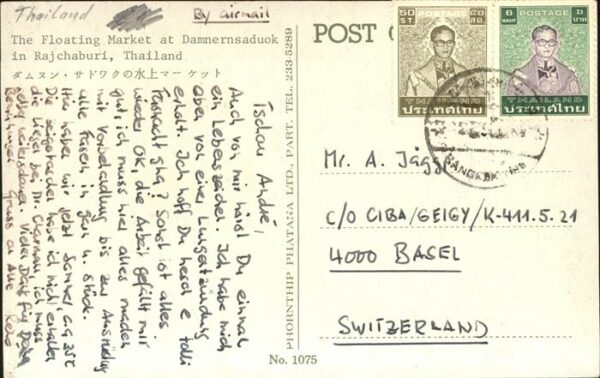 Thailand
By airmail
The Floating Market at Damnernsaduok
in Rajchaburi, Thailand
ダムヌン・サドワクの水上マーケット
Tschau André,
Auch von mir hörst Du einmal
ein Lebenszeichen. Ich habe mich
aber von einer Lungenentzündung
erholt. Ich hoff Du hesch e tolli
Fasnacht gha? Sonst ist alles
wieder OK, die Arbeit gefällt mir
gut, ich muss hier alles machen
mit Vorbehandlung bis zur
alle Farben in Garn u. Stück.
Hier haben wir jetzt Sommer, ca 35°C
Die habe ich nicht erhalten
die bei Dr. ich muss
Vielen Dank für Deine
Gruss an Alle
PHORNTHIP PHATANA LTD. PART. TEL. 233-5289
No. 1075
POST
50 POSTAGE ๕๐
ST. สต.
THAILAND
ประเทศไทย
6 POSTAGE ๖
BAHT บาท
THAILAND
ประเทศไทย
BANGKOK
Mr. A. Jäggi
C/O CIBA/GEIGY/K-411.5.21
4000 BASEL
SWITZERLAND